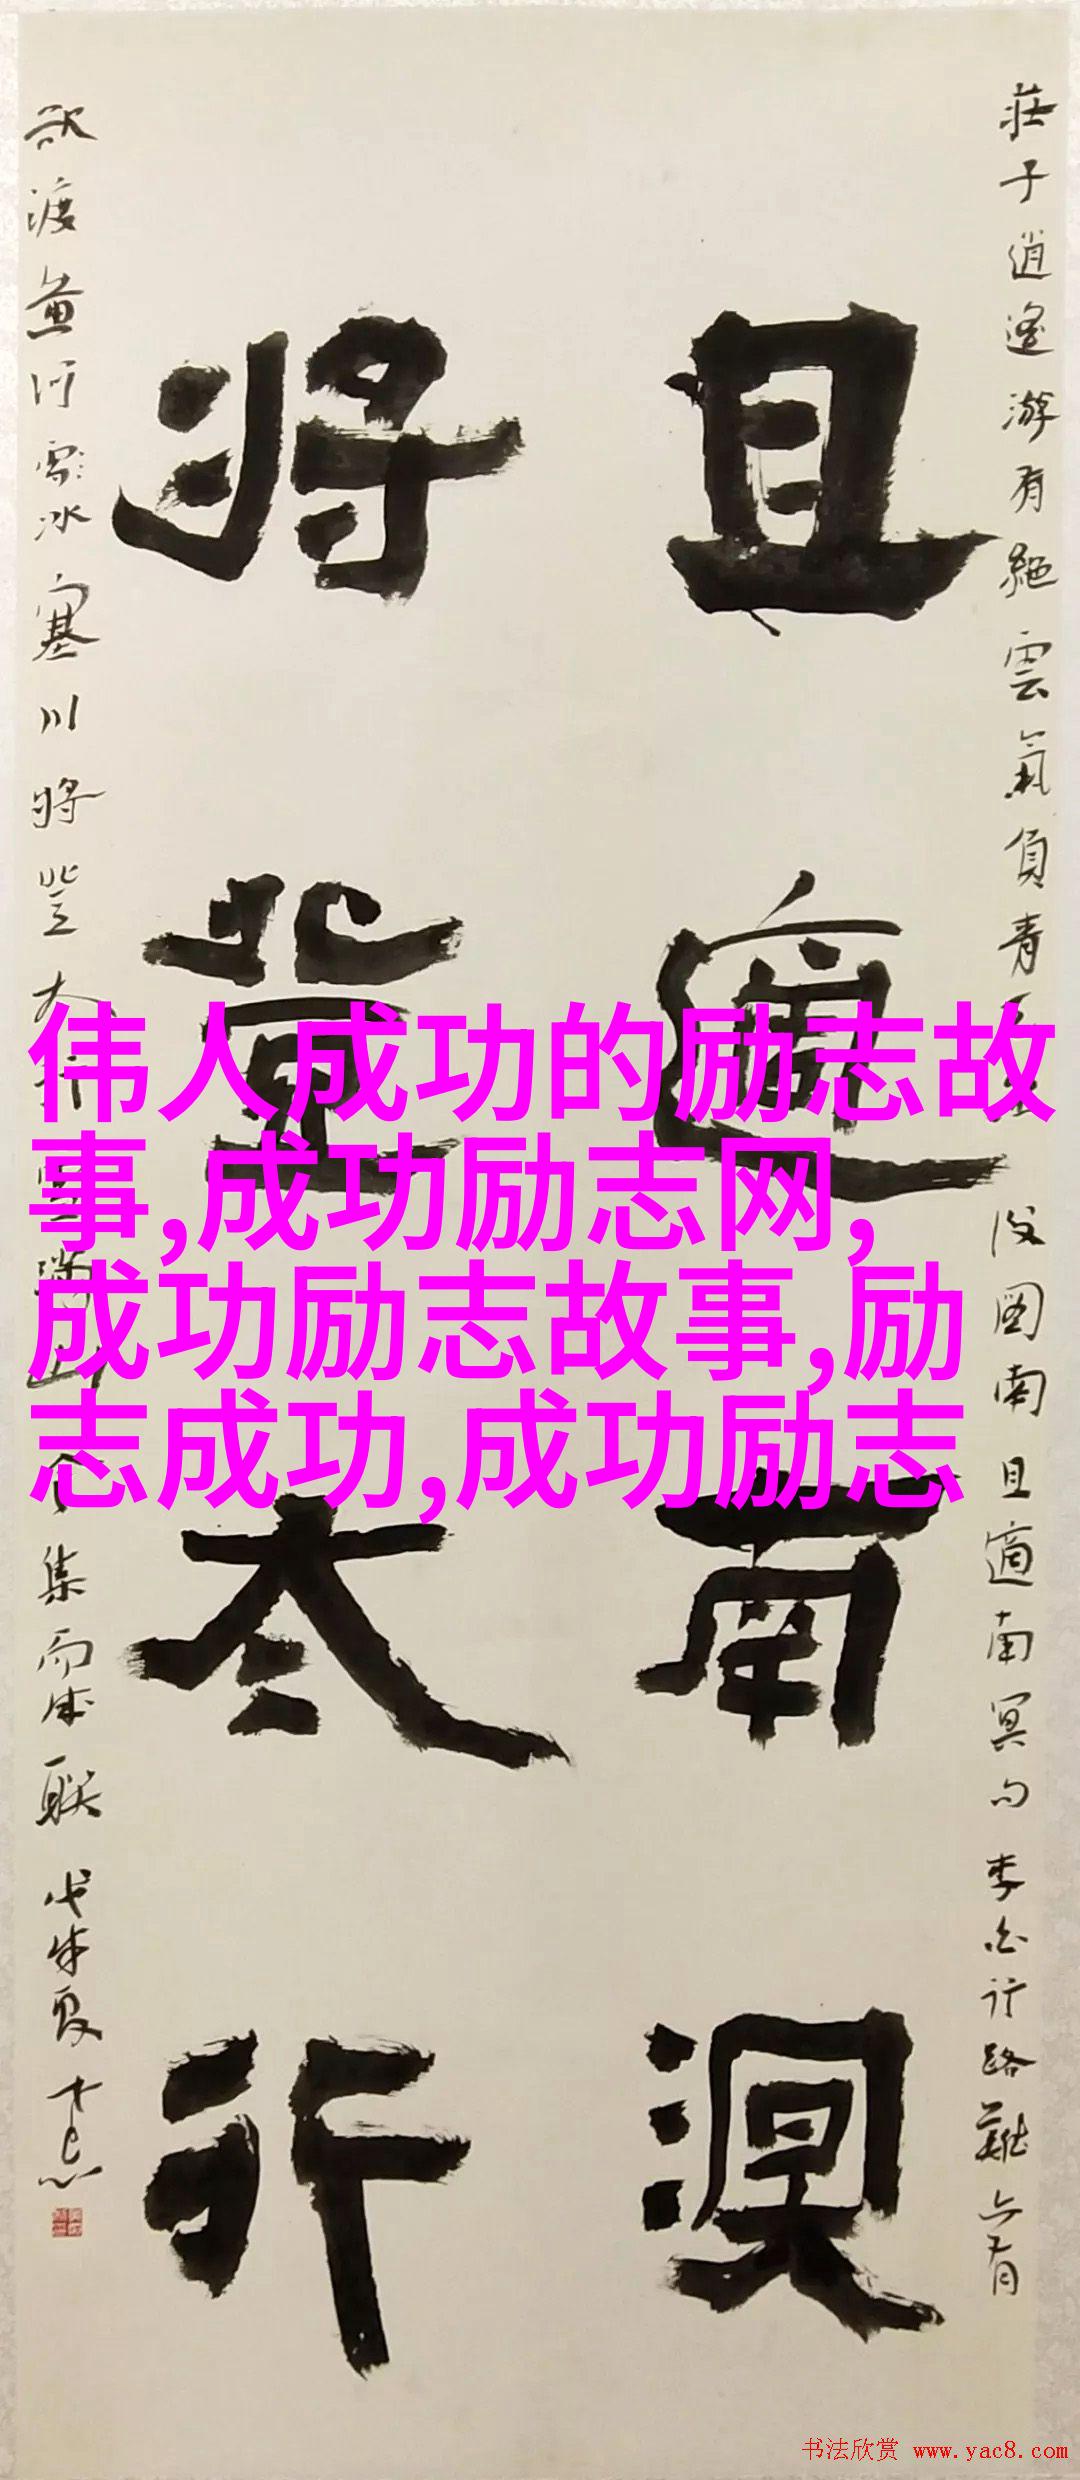 莊子逍遙游有絕雲氣負青
後圖南且適南冥句李白行路難亦有
且適南溟
將登太行
欲渡黃河冰塞川將登太行雪滿山
集而成聯戊戌夏
伟人成功的励志故
事,成功励志网,
成功励志故事,励
志成功,成功励志
书法欣赏 www.yac8.com